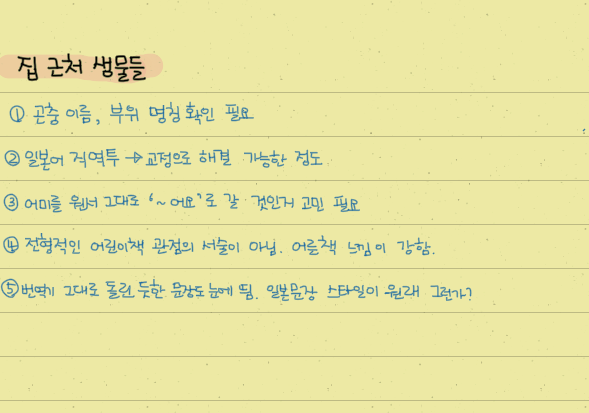 집 근처 생물들
① 곤충 이름, 부위 명칭 확인 필요
② 일본어 직역투 → 교정으로 해결 가능한 정도
③ 어미를 원서 그대로 '~어요'로 갈 것인거 고민 필요
④ 전형적인 어린이책 관점의 서술이 아님. 어른책 느낌이 강함.
⑤ 번역기 그대로 돌린 듯한 문장도 눈에 띔. 일본문장 스타일이 원래 그런가?